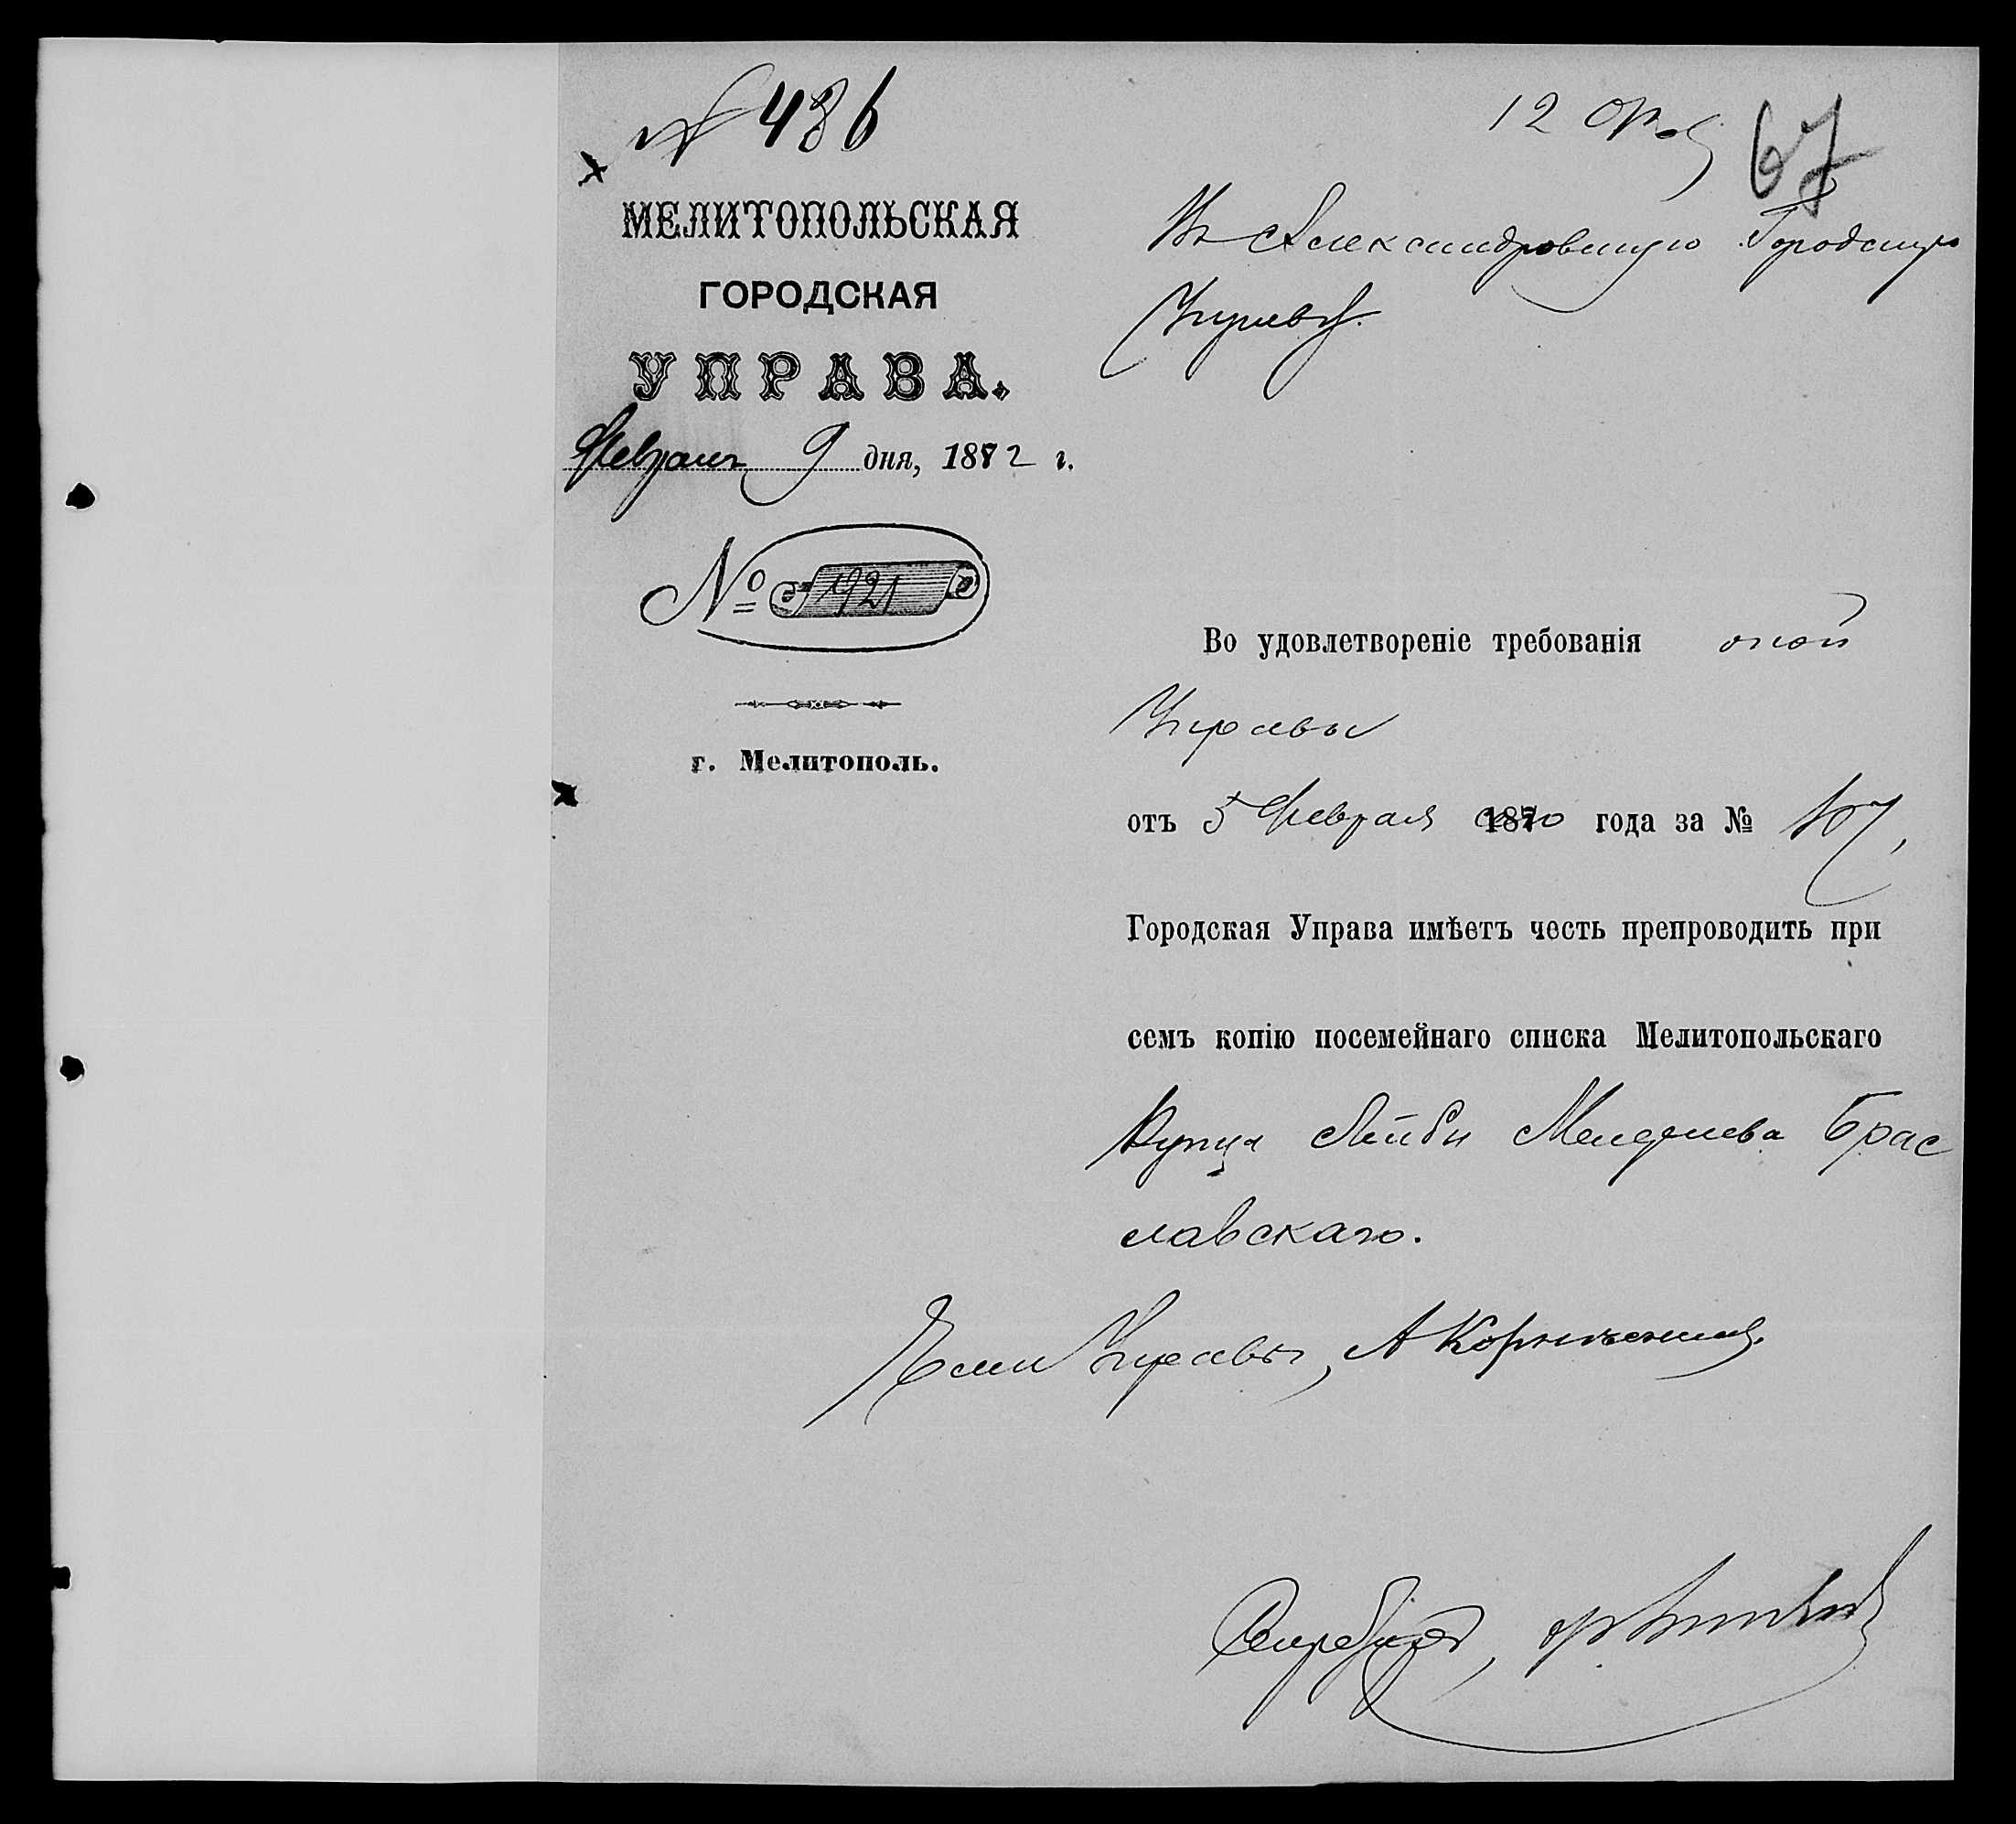 № 486
12 Фев
67
МЕЛИТОПОЛЬСКАЯ
ГОРОДСКАЯ
УПРАВА.
Февраля 9 дня, 1882 г.
№ 1921
г. Мелитополь.
Въ Александровскую Городскую
Управу.
Во удовлетвореніе требованія оной
Управы
отъ 5 Февраля сего года за № 107,
Городская Управа имѣетъ честь препроводить при
семъ копію посемейнаго списка Мелитопольскаго
Купца Лейбы Менделева Брас
лавскаго.
Членъ Управы, А Корниенко
Секретарь,